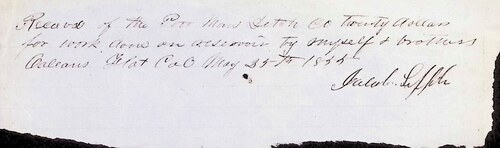 Recived of the Poor Mans Ditch Co twenty dollars
for work done on reservoir by myself & brothers
Orleans Flat Cal May 25th 1855
Jacob